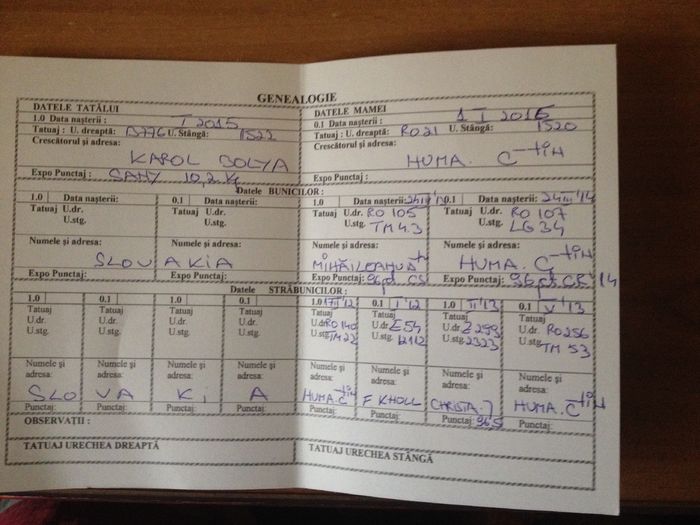 GENEALOGIE
DATELE TATĂLUI
1.0 Data nașterii: I 2015
Tatuaj : U. dreaptă: D776 U. Stângă: 1522
Crescătorul și adresa:
KAROL BOLYA
Expo Punctaj : SAMY 10,2 Kg
DATELE MAMEI
0.1 Data nașterii : 1 I 2015
Tatuaj : U. dreaptă: RO21 U. Stângă: 1520
Crescătorul și adresa:
HUMA. C-tin
Expo Punctaj :
Datele BUNICILOR :
1.0 Data nașterii:
Tatuaj U.dr.
U.stg.
Numele și adresa:
Expo Punctaj:
0.1 Data nașterii:
Tatuaj U.dr.
U.stg.
Numele și adresa:
Expo Punctaj:
SLOVAKIA
1.0 Data nașterii:
Tatuaj U.dr. RO 105
U.stg. TM 43
Numele și adresa:
Expo Punctaj:
0.1 Data nașterii: 24 III '14
Tatuaj U.dr. RO 107
U.stg. LG 34
Numele și adresa:
HUMA. C-tin
Expo Punctaj:
Datele STRĂBUNICILOR :
1.0
Tatuaj
U.dr.
U.stg.
Numele și adresa:
Punctaj:
0.1
Tatuaj
U.dr.
U.stg.
Numele și adresa:
Punctaj:
1.0
Tatuaj
U.dr.
U.stg.
Numele și adresa:
Punctaj:
0.1
Tatuaj
U.dr.
U.stg.
Numele și adresa:
Punctaj:
SLOVAKIA
1.0
Tatuaj
U.dr. RO 140
U.stg. TM 22
Numele și adresa:
HUMA. C-tin
Punctaj:
0.1 I '12
Tatuaj
U.dr. E54
U.stg. 2112
Numele și adresa:
F KHOLL
Punctaj:
1.0 II '13
Tatuaj
U.dr. Z 299
U.stg. 2323
Numele și adresa:
CHRISTA. J
Punctaj: 96,5
0.1 V '13
Tatuaj
U.dr. RO 256
U.stg. TM 53
Numele și adresa:
HUMA. C-tin
Punctaj:
OBSERVAȚII :
TATUAJ URECHEA DREAPTĂ
TATUAJ URECHEA STÂNGĂ